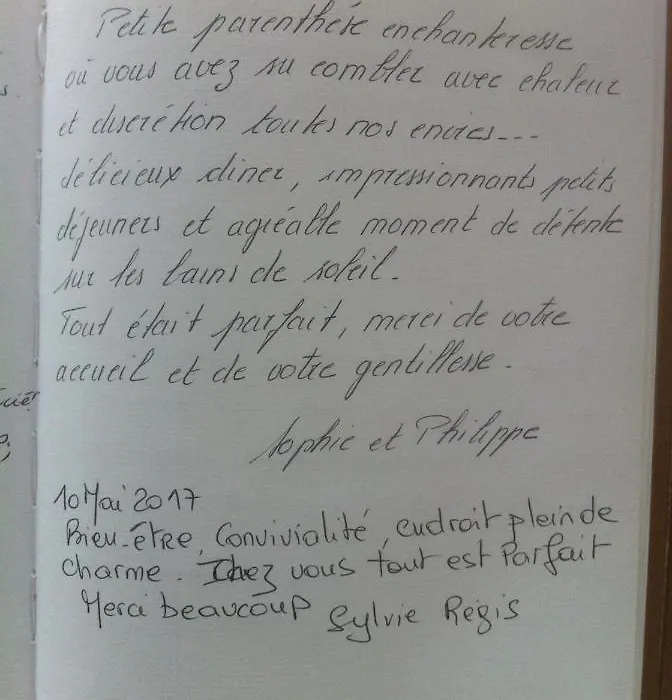 Petite parenthèse enchanteresse
où vous avez su combler avec chaleur
et discrétion toutes nos envies...
délicieux diner, impressionnants petits
déjeuners et agréable moment de détente
sur les bains de soleil.
Tout était parfait, merci de votre
accueil et de votre gentillesse.
Sophie et Philippe
10 Mai 2017
Bien-être, Convivialité, endroit plein de
charme. Chez vous tout est Parfait
Merci beaucoup Sylvie Régis